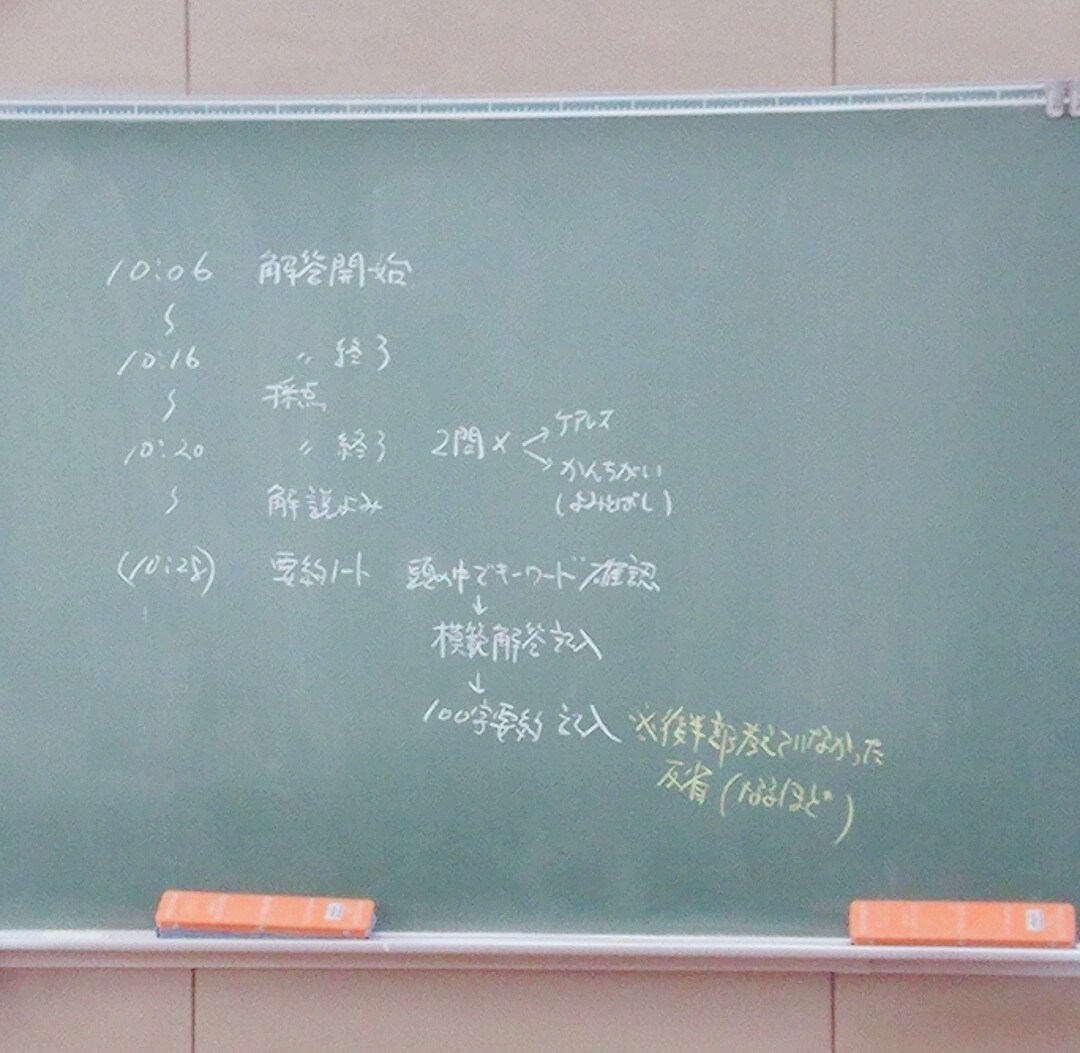 10:06 解答開始
〜
10:16 〃 終了
〜 採点
10:20 〃 終了 2問× ケアレス
かんちがい
〜 解説よみ (よみとばし)
(10:28) 要約ノート 頭の中でキーワード確認
↓
模範解答記入
↓
100字要約記入 ※後半部考えていなかった
反省(なるほど)